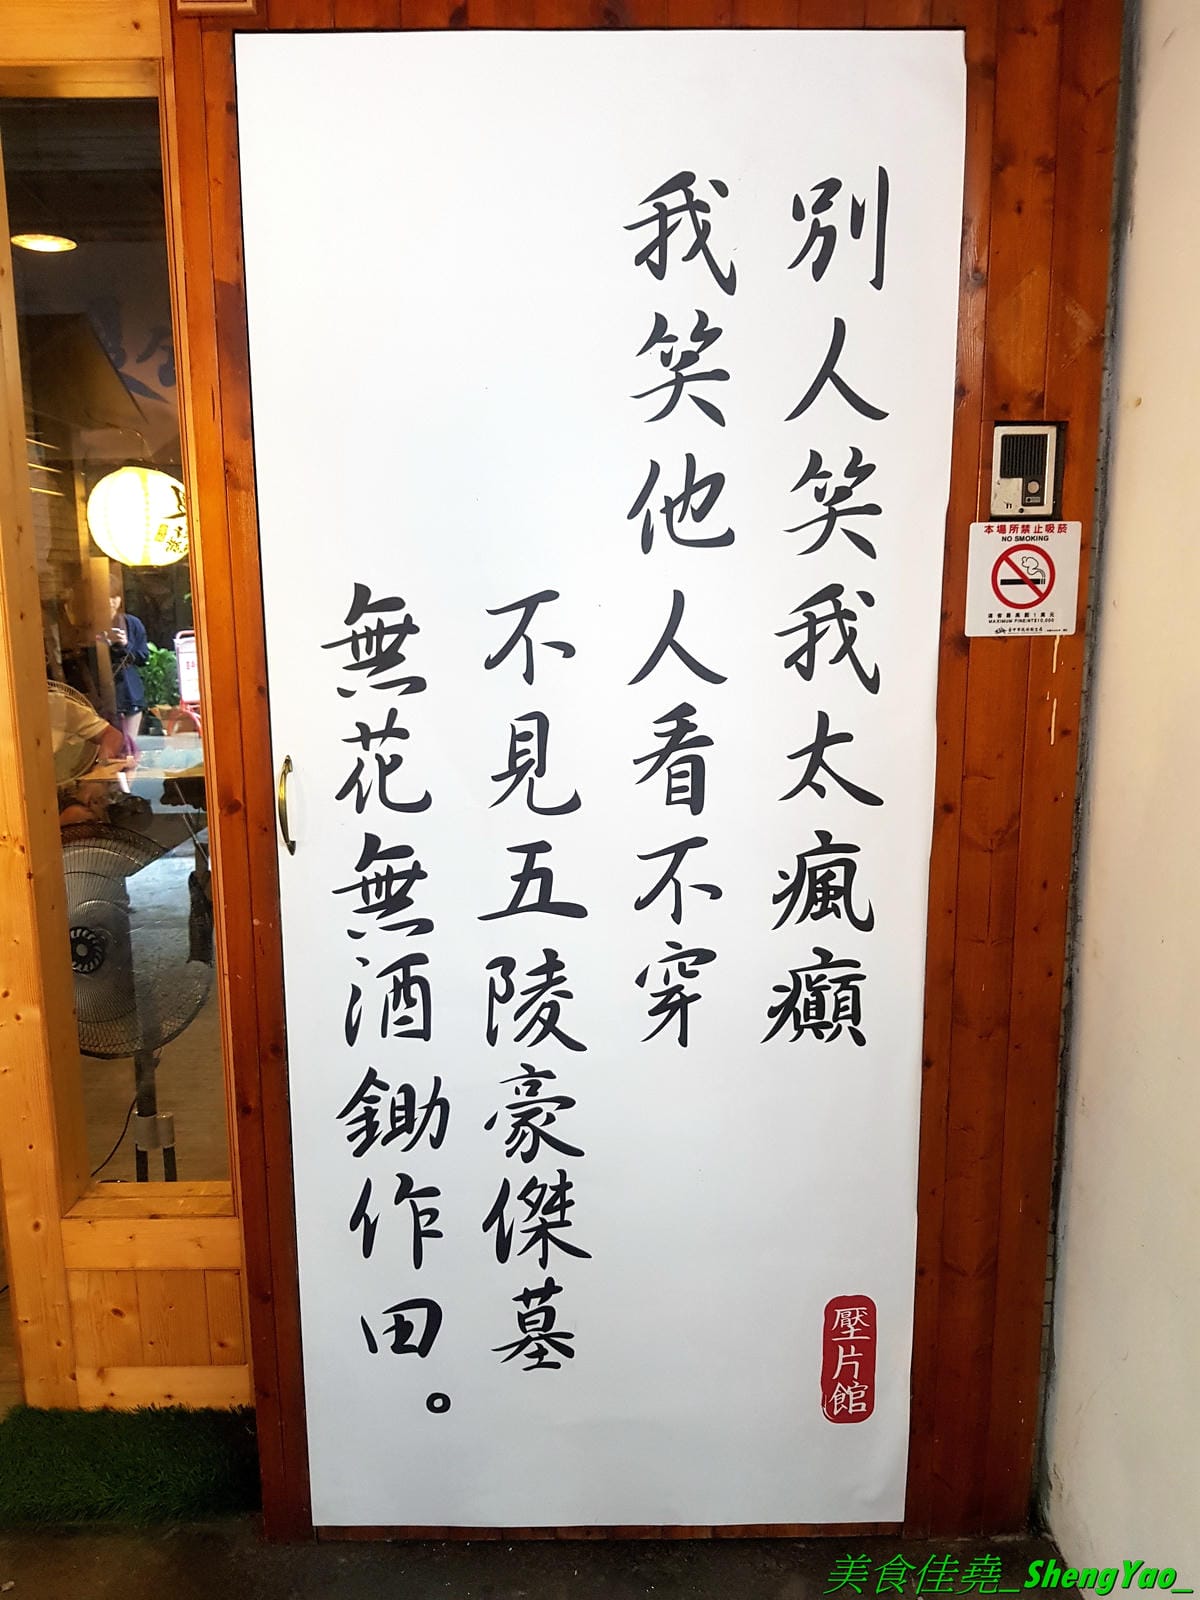 別人笑我太瘋癲
我笑他人看不穿
不見五陵豪傑墓
無花無酒鋤作田。
壓片館
本場所禁止吸菸
NO SMOKING
違者最高罰1萬元
MAXIMUM FINE:NT$10,000
美食佳堯_ShengYao_